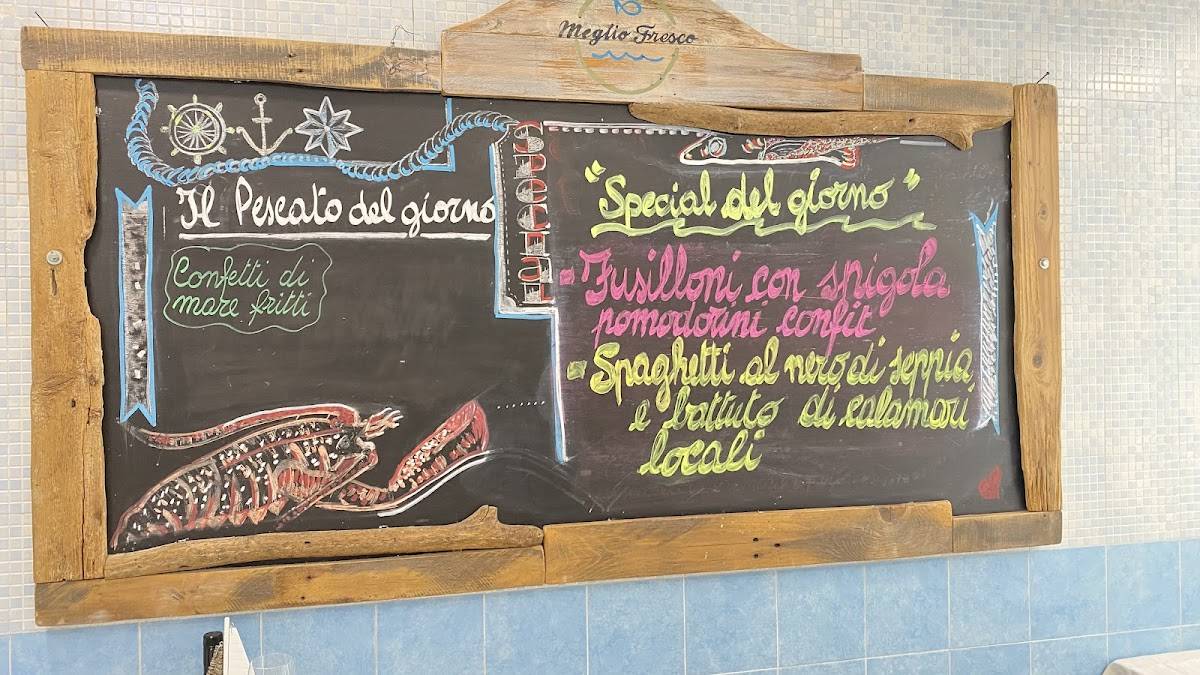 Meglio Fresco
Il Pescato del giorno
Confetti di
mare fritti
SPECIAL
"Special del giorno"
- Fusilloni con spigola
pomodorini confit
- Spaghetti al nero di seppia
e battuto di calamari
locali